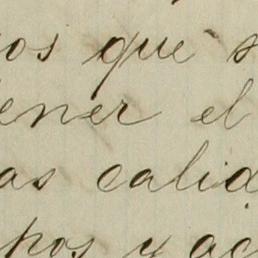 os que s
ener el
as calid
pos y ac